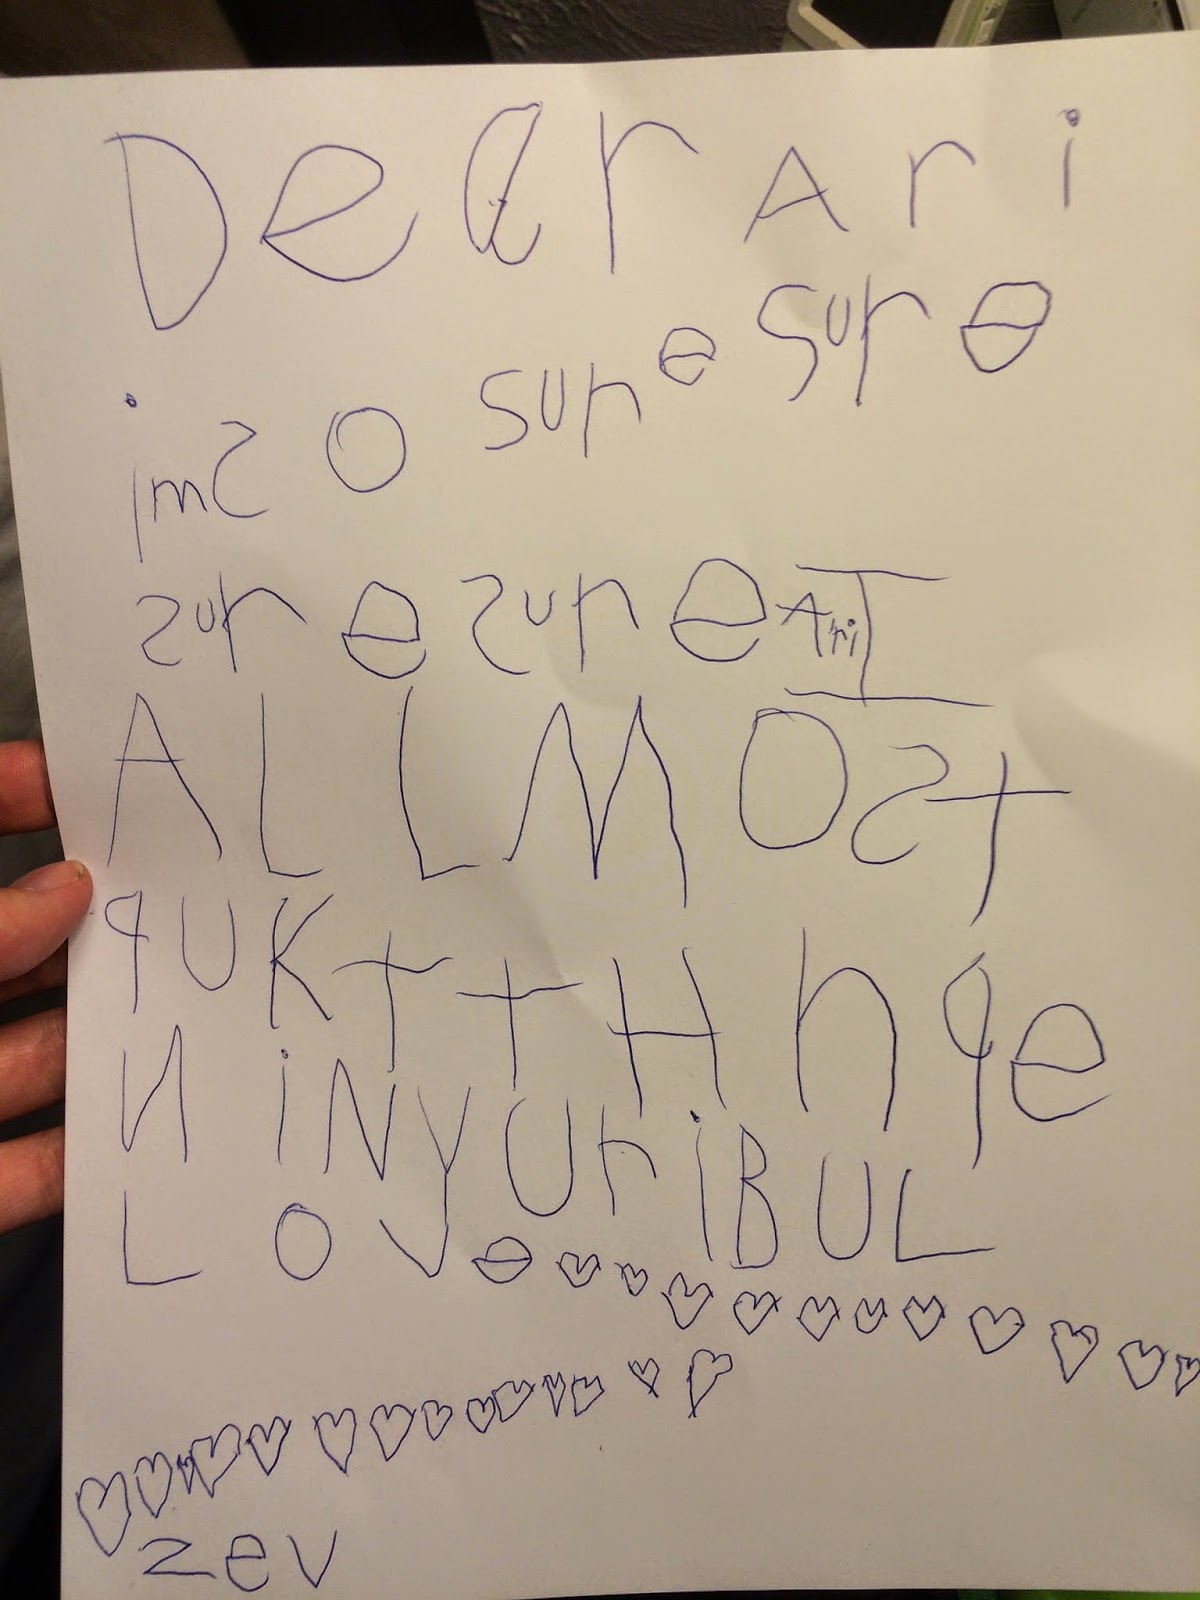 Dear Ari
im so sure sure
sure sure Ari I
ALLMOST
qUKt tHnqe
N iN yUr iBUL
LOVe
zev